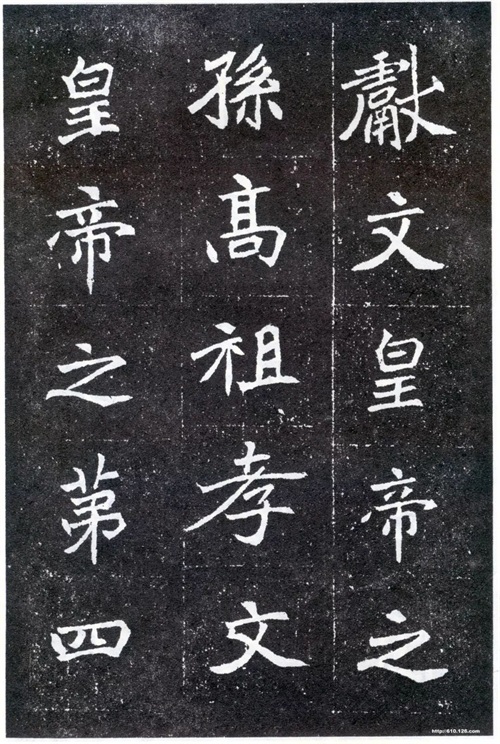 獻文皇帝之
孫髙祖孝文
皇帝之苐四
http://610.128.com